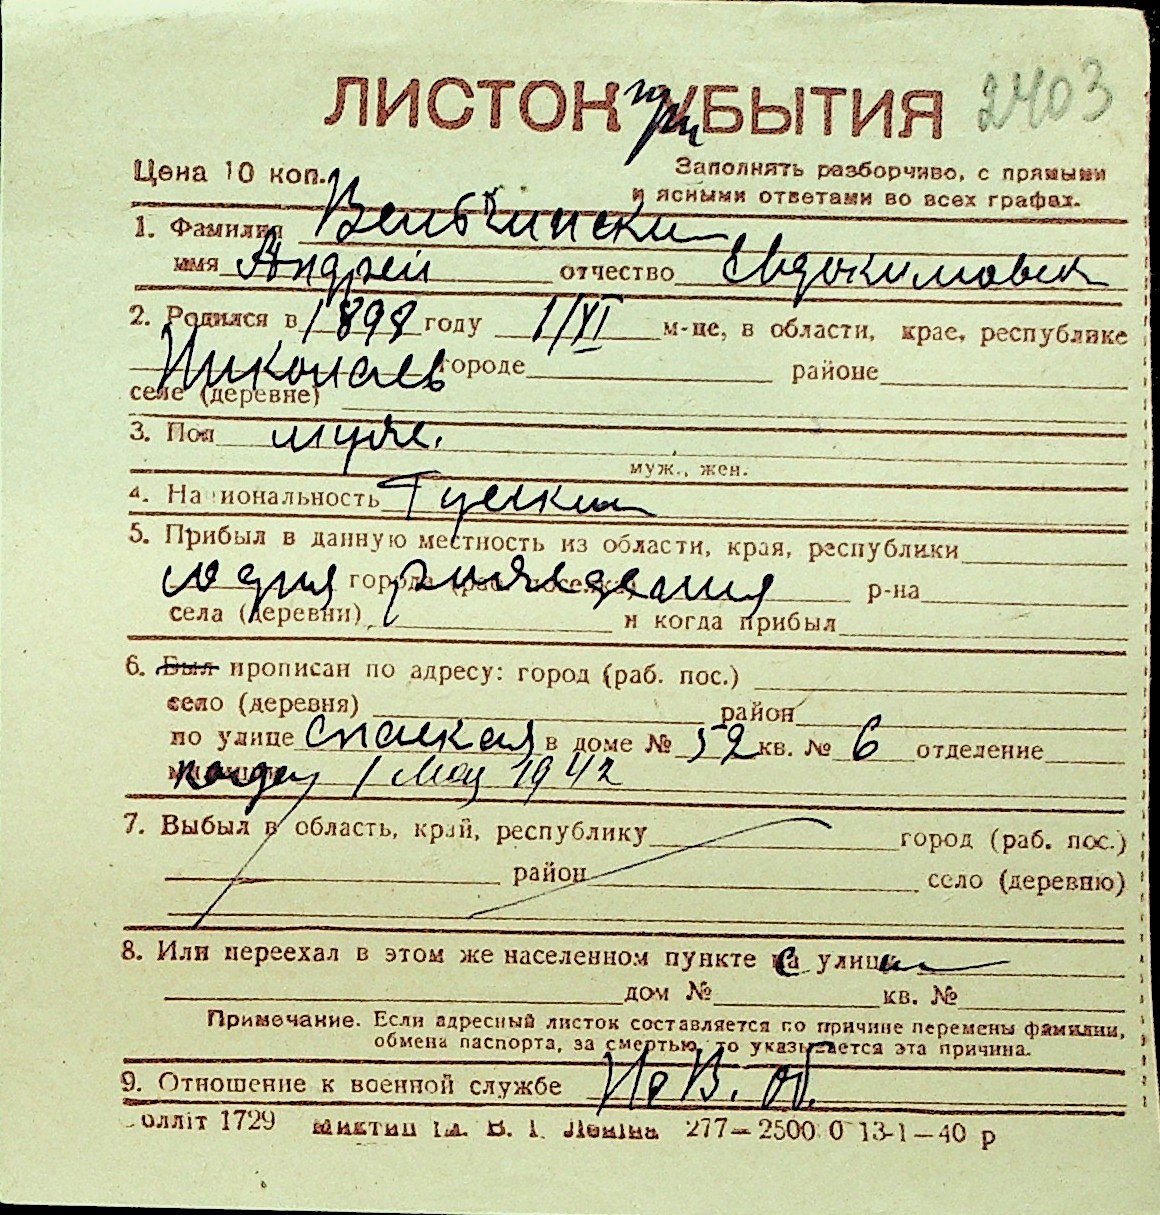 ЛИСТОК при УБЫТИЯ 2403
Цена 10 коп. Заполнять разборчиво, с прямыми
и ясными ответами во всех графах.
1. Фамилия Вельчински
имя Андрей отчество Евдокимович
2. Родился в 1898 году 1/VI м-це, в области, крае, республике
Николаев городе районе
селе (деревне)
3. Пол муж.
муж., жен.
4. Национальность Русский
5. Прибыл в данную местность из области, края, республики
со дня рождения города (раб. поселка) р-на
села (деревни) и когда прибыл
6. Был прописан по адресу: город (раб. пос.)
село (деревня) район
по улице Спаская в доме № 52 кв. № 6 отделение
1 Мая 1942
7. Выбыл в область, край, республику город (раб. пос.)
район село (деревню)
8. Или переехал в этом же населенном пункте с улицы
дом № кв. №
Примечание. Если адресный листок составляется по причине перемены фамилии,
обмена паспорта, за смертью, то указывается эта причина.
9. Отношение к военной службе Не В. об.
олліт 1729 ім. В. І. Леніна 277—2500 0 13-1—40 р